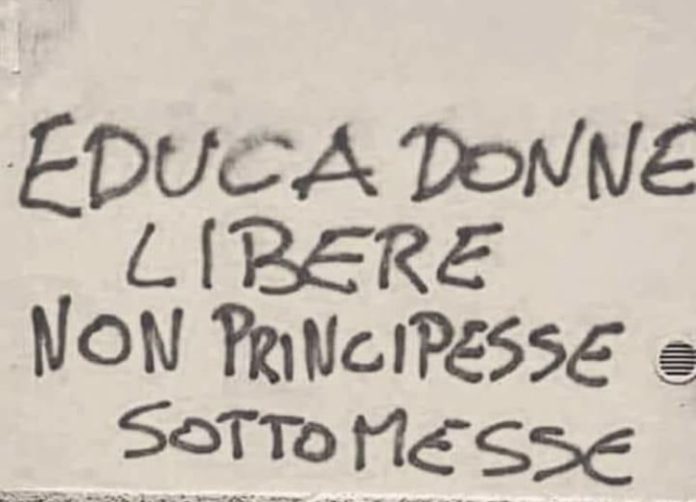 EDUCA DONNE
LIBERE
NON PRINCIPESSE
SOTTOMESSE